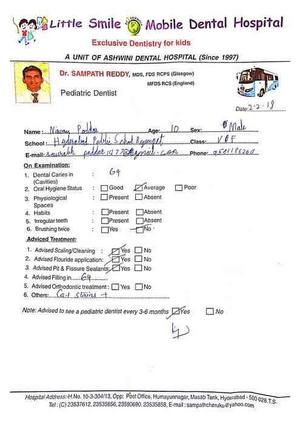 Little Smile Mobile Dental Hospital
Exclusive Dentistry for kids
A UNIT OF ASHWINI DENTAL HOSPITAL (Since 1997)
Dr. SAMPATH REDDY, MDS, FDS RCPS (Glasgow)
MFDS RCS (England)
Pediatric Dentist
Date: 2-2-18
Name: Age: 10 Sex: Male
School: Hyderabad Public School Class: V
E-mail:
On Examination:
1. Dental Caries in (Cavities)
2. Oral Hygiene Status : Good Average Poor
3. Physiological Spaces : Present Absent
4. Habits : Present Absent
5. Irregular teeth : Present Absent
6. Brushing twice : Yes No
Adviced Treatment:
1. Advised Scaling/Cleaning : Yes No
2. Advised Flouride application: Yes No
3. Advised Pit & Fissure Sealants: Yes No
4. Advised Filling in
5. Advised Orthodontic treatment : Yes No
6. Others: stains +
Note: Advised to see a pediatric dentist every 3-6 months Yes No
Hospital Address:-H.No. 10-3-304/13, Opp: Post Office, Humayunnagar, Masab Tank, Hyderabad - 500 028.T.S.
Tel: (C) 23537612, 23535656, 23590690, 23535858, E-mail : sampathcheruku@yahoo.com